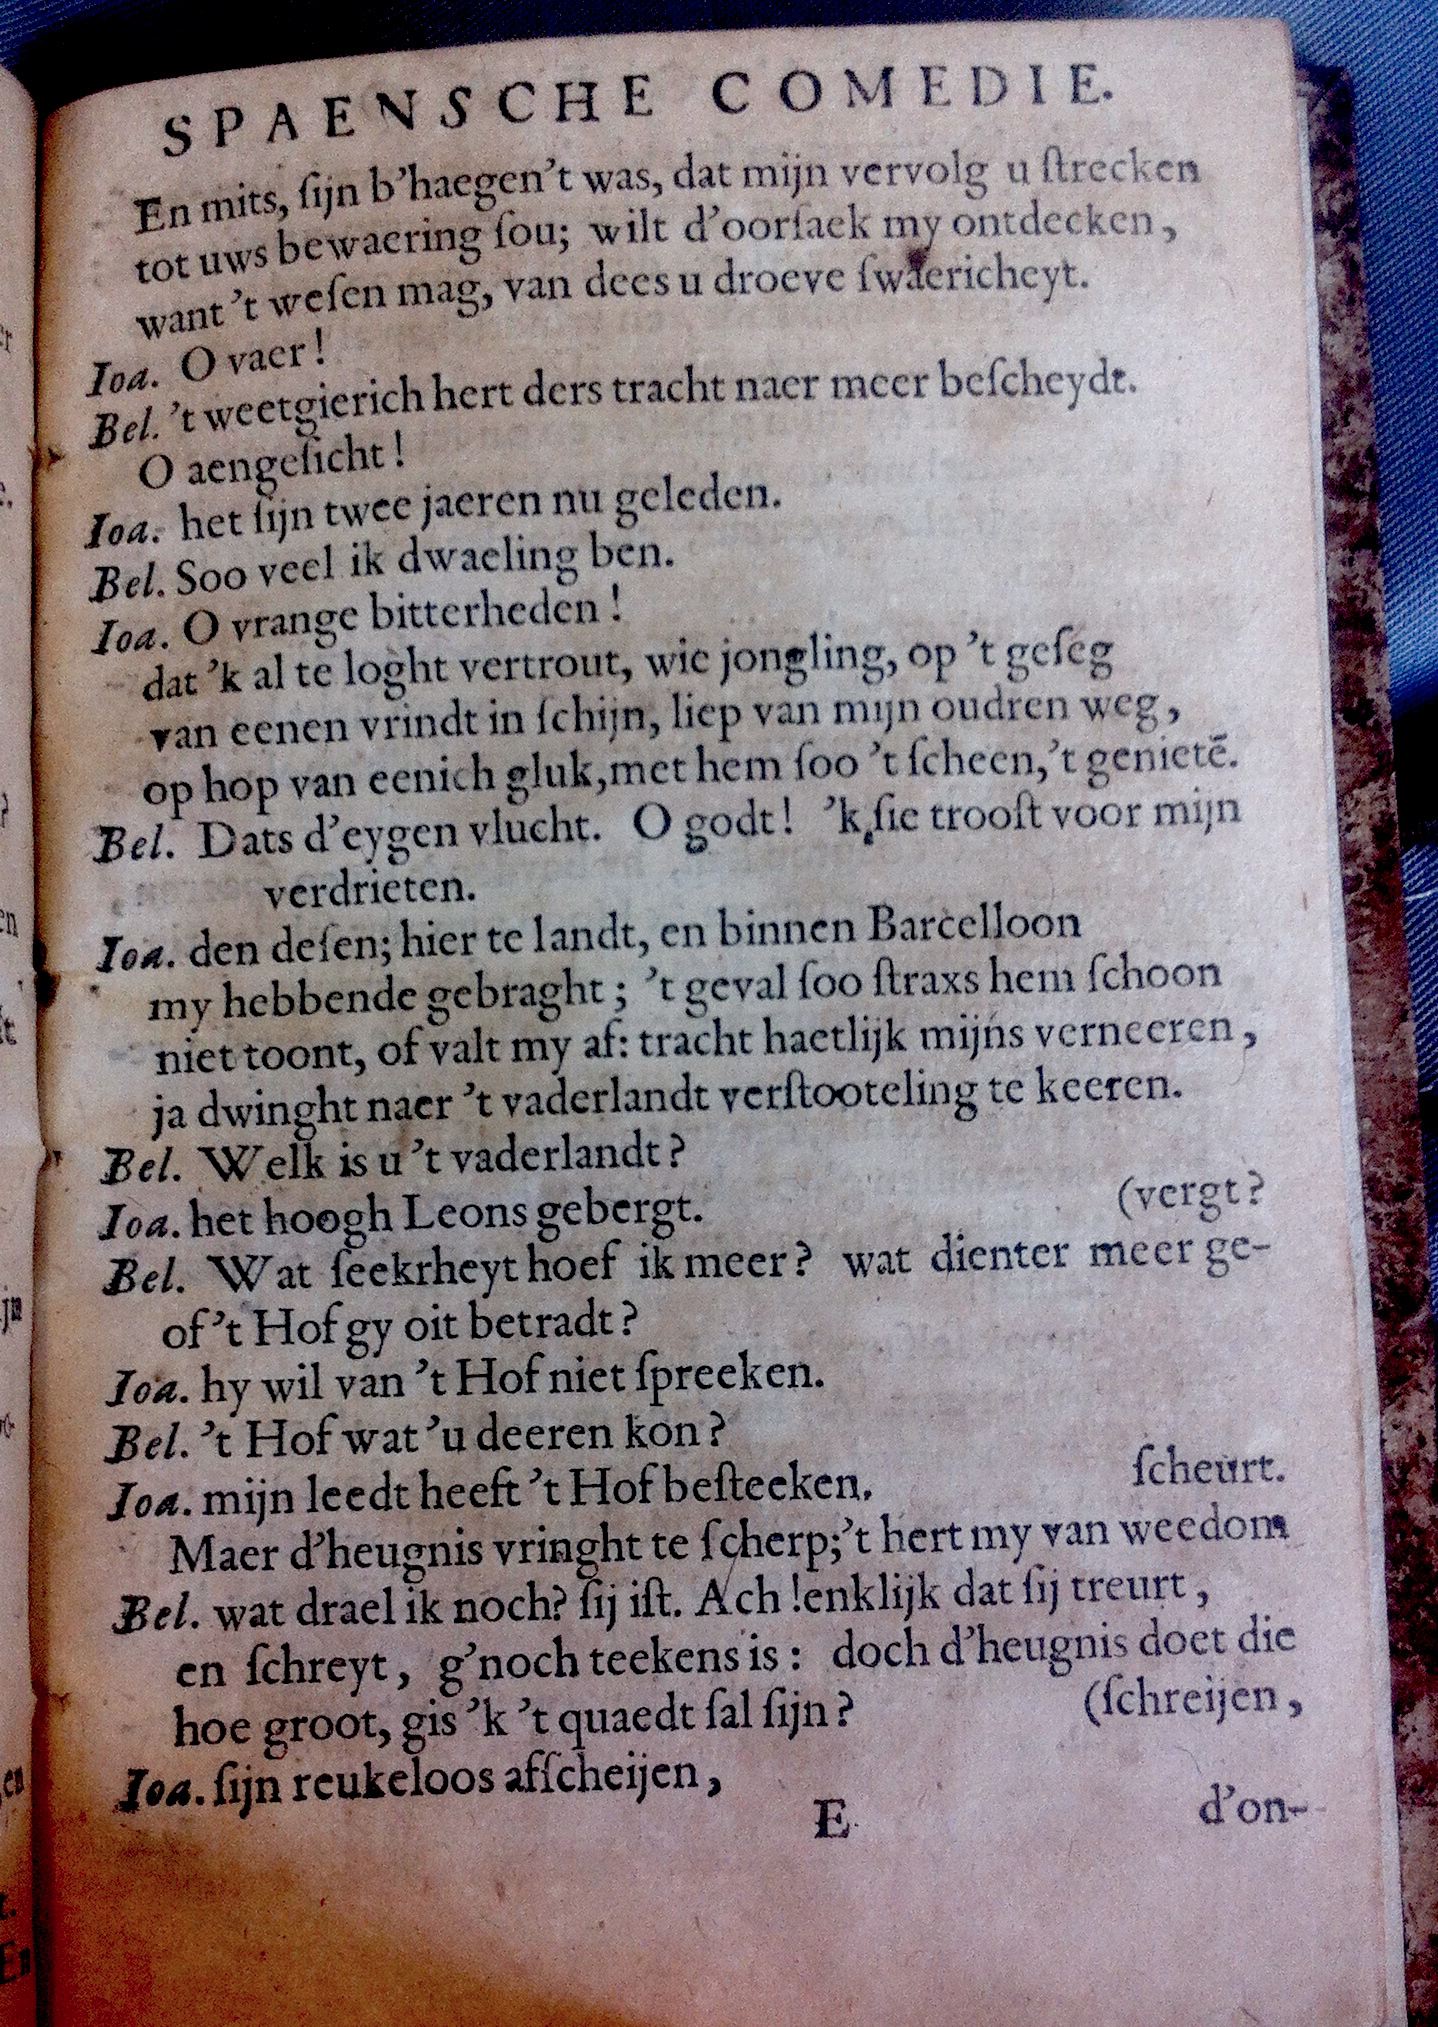 SPAENSCHE COMEDIE.
En mits, ſijn b'haegen't was, dat mijn vervolg u ſtrecken
tot uws bewaering ſou; wilt d'oorſaek my ontdecken,
want 't weſen mag, van dees u droeve ſwaericheyt.
Ioa. O vaer!
Bel. 't weetgierich hert ders tracht naer meer beſcheydt.
O aengeſicht!
Ioa. het ſijn twee jaeren nu geleden.
Bel. Soo veel ik dwaeling ben.
Ioa. O vrange bitterheden!
dat 'k al te loght vertrout, wie jongling, op 't geſeg
van eenen vrindt in ſchijn, liep van mijn oudren weg,
op hop van eenich gluk, met hem ſoo 't ſcheen, 't genietē.
Bel. Dats d'eygen vlucht. O godt! 'k ſie trooſt voor mijn
verdrieten.
Ioa. den deſen; hier te landt, en binnen Barcelloon
my hebbende gebraght; 't geval ſoo ſtraxs hem ſchoon
niet toont, of valt my af: tracht haetlijk mijns verneeren,
ja dwinght naer 't vaderlandt verſtooteling te keeren.
Bel. Welk is u 't vaderlandt?
Ioa. het hoogh Leons gebergt. (vergt?
Bel. Wat ſeekrheyt hoef ik meer? wat dienter meer ge-
of 't Hof gy oit betradt?
Ioa. hy wil van 't Hof niet ſpreeken.
Bel. 't Hof wat 'u deeren kon?
Ioa. mijn leedt heeft 't Hof beſteeken. ſcheurt.
Maer d'heugnis vringht te ſcherp; 't hert my van weedom
Bel. wat drael ik noch? ſij iſt. Ach! enklijk dat ſij treurt,
en ſchreyt, g'noch teekens is: doch d'heugnis doet die
hoe groot, gis 'k 't quaedt ſal ſijn? (ſchreijen,
Ioa. ſijn reukeloos afſcheijen,
E d'on-